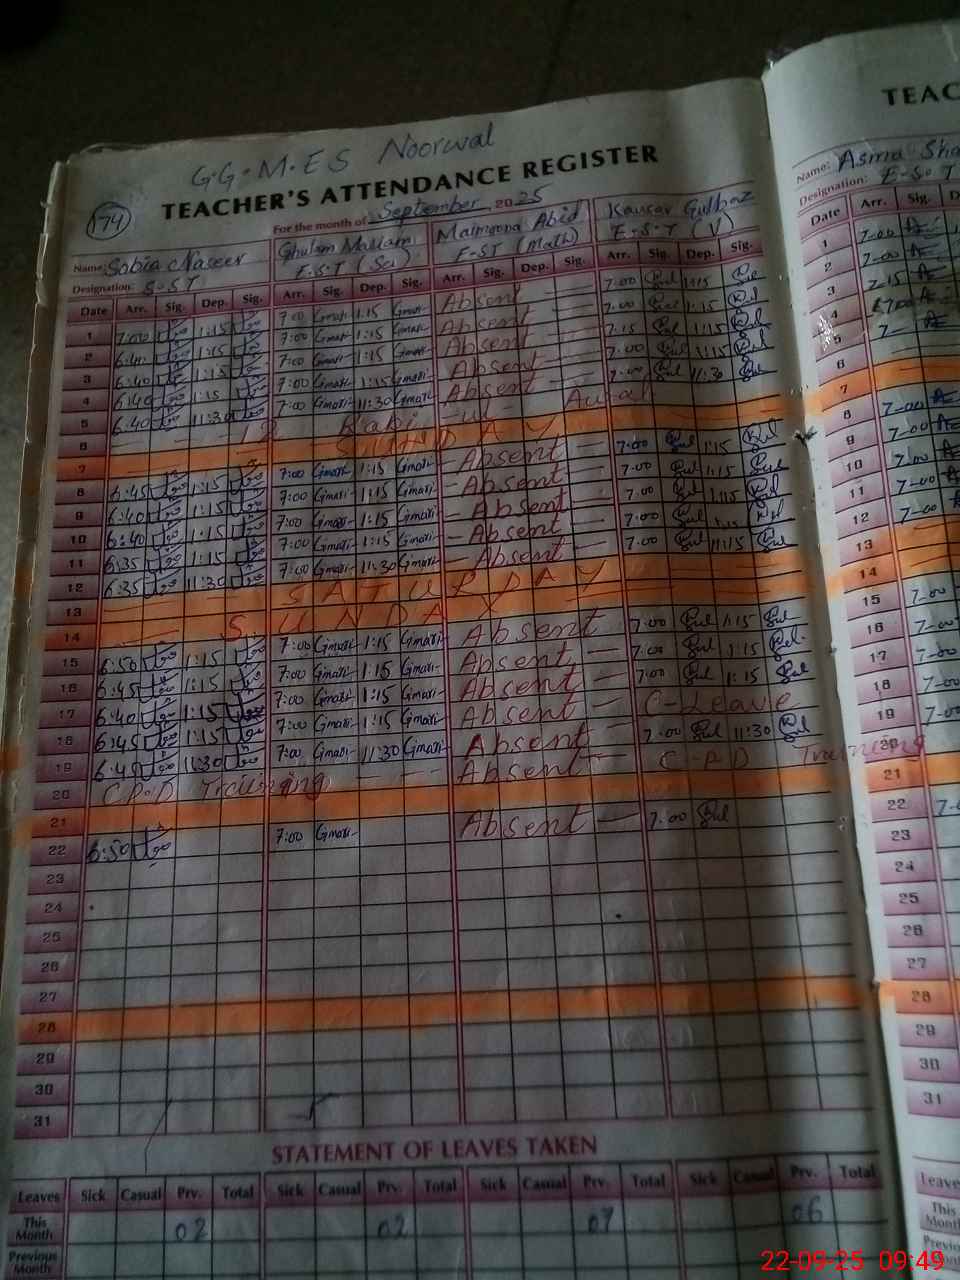 G.G.M.E.S Noorwal
TEACHER'S ATTENDANCE REGISTER
174
For the month of September, 2025
Name: Sobia Naseer Ghulam Maryam Maimoona Abid Kausar Gulbaz
Designation: S.S.T E.S.T (Sci) EST (Math) E.S.T (V)
Date Arr. Sig. Dep. Sig. Arr. Sig. Dep. Sig. Arr. Sig. Dep. Sig. Arr. Sig. Dep. Sig.
1 7:00 1:15 7:00 1:15 Absent 7:00 1:15
2 6:40 1:15 7:00 1:15 Absent 7:00 1:15
3 6:40 1:15 7:00 1:15 Absent 7:15 1:15
4 6:40 1:15 7:00 1:15 Absent 7:00 1:15
5 6:40 11:30 7:00 11:30 Absent 7:00 11:30
6 12 Rabi-ul-Awal
7 SUNDAY
8 6:45 1:15 7:00 1:15 Absent 7:00 1:15
9 6:40 1:15 7:00 1:15 Absent 7:00 1:15
10 6:40 1:15 7:00 1:15 Absent 7:00 1:15
11 6:35 1:15 7:00 1:15 Absent 7:00 1:15
12 6:35 11:30 7:00 11:30 Absent 7:00 11:15
13 SATURDAY
14 SUNDAY
15 6:50 1:15 7:00 1:15 Absent 7:00 1:15
16 6:45 1:15 7:00 1:15 Absent 7:00 1:15
17 6:40 1:15 7:00 1:15 Absent 7:00 1:15
18 6:45 1:15 7:00 1:15 Absent C-Leave
19 6:40 11:30 7:00 11:30 Absent 7:00 11:30
20 C.P.D Training Absent C-P-D Training
21
22 6:50 7:00 Absent 7:00
23
24
25
26
27
28
29
30
31
STATEMENT OF LEAVES TAKEN
Leaves Sick Casual Prv. Total Sick Casual Prv. Total Sick Casual Prv. Total Sick Casual Prv. Total
This Month 02 02 07 06
Previous Month
TEAC
Name: Asma
Designation: E-S-T
Date Arr. Sig.
1 7-00
2 7-00
3 7-15
4 7-00
5 7-
6
7
8 7-00
9 7-00
10 7-00
11 7-00
12 7-00
13
14
15 7-00
16 7-00
17 7-00
18 7-00
19 7-00
20
21
22 7-
23
24
25
26
27
28
29
30
31
Leave
This Month
22-09-25 09:49